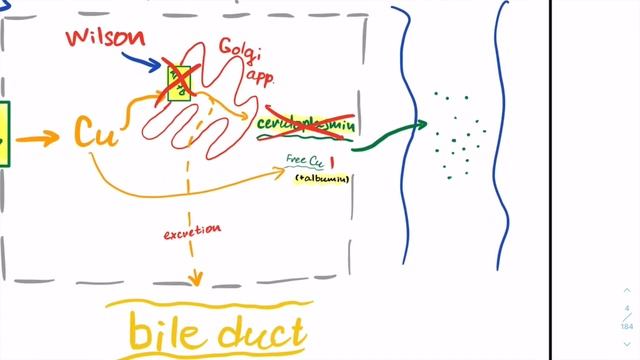 Wilson
Golgi
app.
Cu
ceruloplasmin
Free Cu
(+albumin)
excretion
bile duct
4
/
184